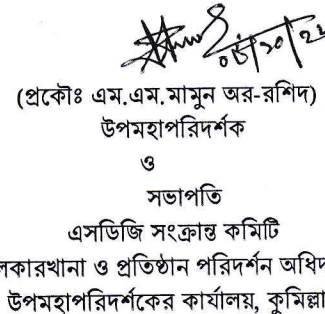 ০৬/১০/২২
(প্রকৌঃ এম.এম.মামুন অর-রশিদ)
উপমহাপরিদর্শক
ও
সভাপতি
এসডিজি সংক্রান্ত কমিটি
লকারখানা ও প্রতিষ্ঠান পরিদর্শন অধিদ
উপমহাপরিদর্শকের কার্যালয়, কুমিল্লা